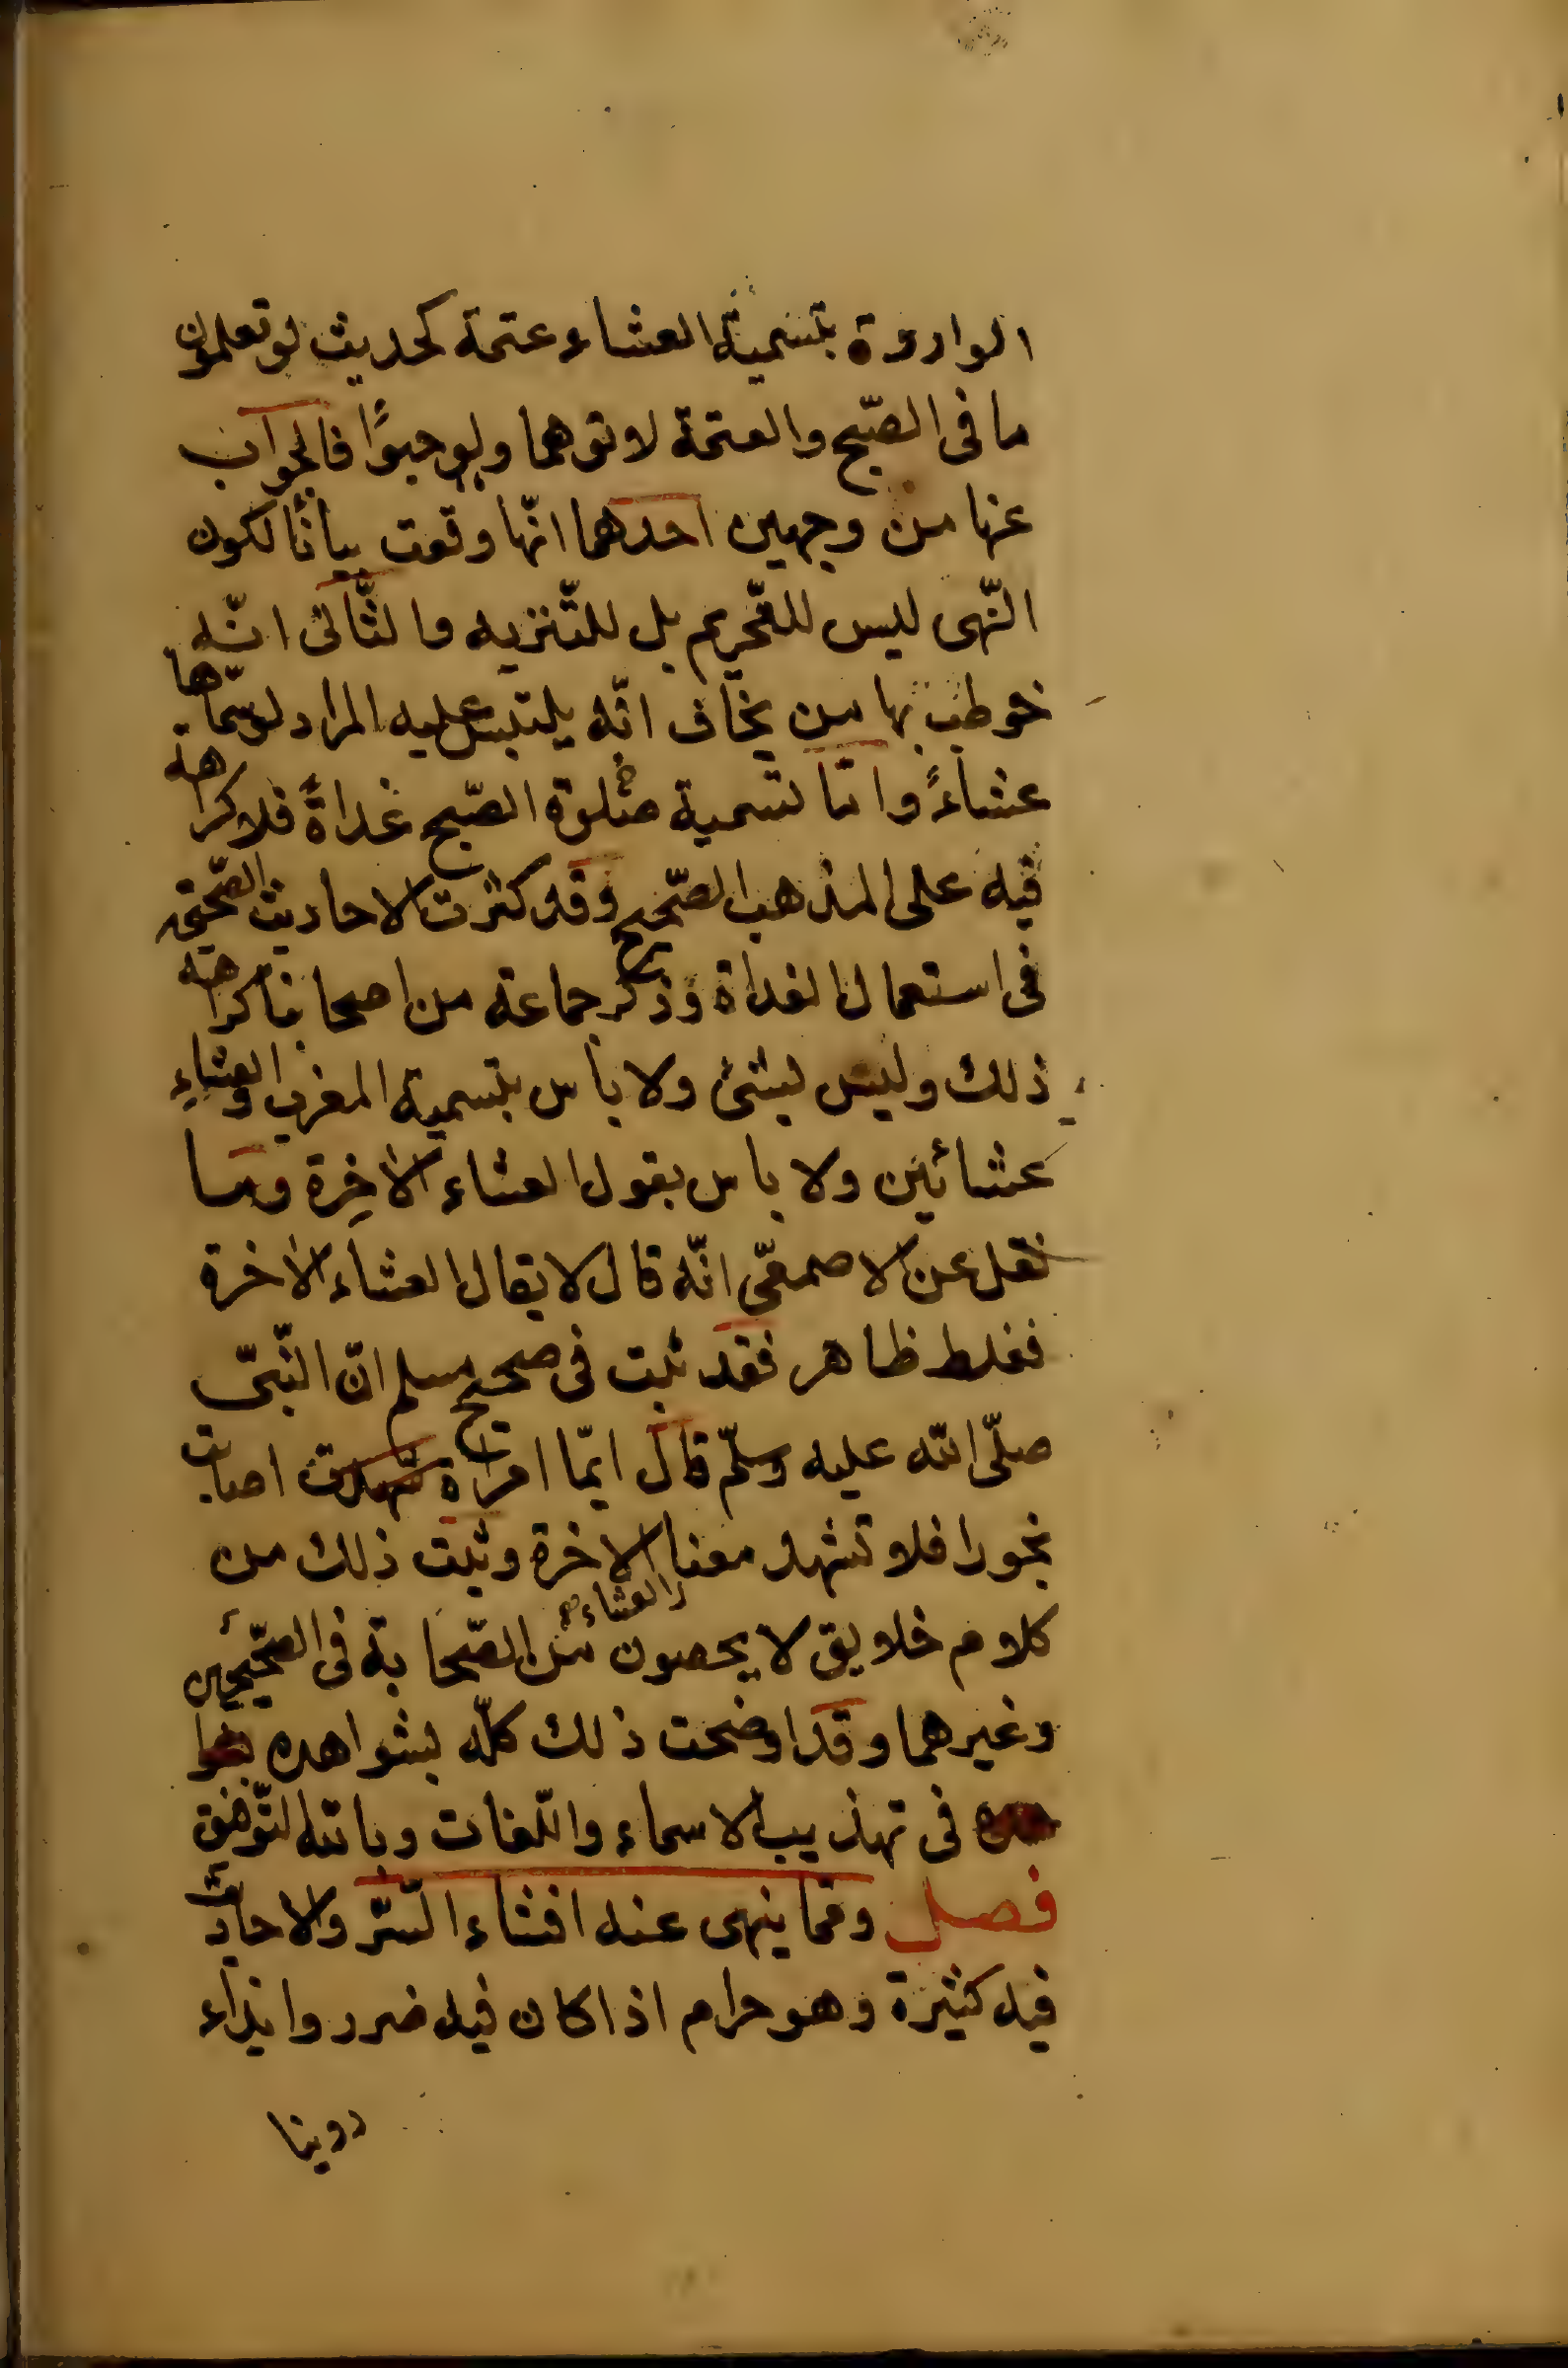 الواردة بتسمية العشاء عتمة كحديث لو تعلمون
ما فى الصّبح والعتمة لاتوهما ولو حبوًا فالجواب
عنها من وجهين احدهما انّها وقعت بيانًا لكون
النّهى ليس للتّحريم بل للتّنزيه والثّانى انّه
خوطب بها من يخاف انّه يلتبس عليه المراد لو سمّاها
عشاءً وامّا تسمية صلوة الصّبح غداةً فلا كراهة
فيه على المذهب الصّحيح وقد كثرت الاحاديث الصّحيحة
فى استعمال الغداة وذكر جماعة من اصحابنا كراهة
ذلك وليس بشئ ولا بأس بتسمية المغرب والعشاءِ
عشائين ولا بأس بقول العشاء الآخِرة وما
نقل عن الاصمعّى انّه قال لا يقال العشاء الآخرة
فغلط ظاهر فقد ثبت فى صحيح مسلم انّ النّبىّ
صلّى الله عليه وسلّم قال ايّما امرأة شهدت اصابت
بخورا فلا تشهد معنا الآخرة وثبت ذلك من
العشاء
كلام خلايق لا يحصون من الصّحابة فى الصّحيحين
وغيرهما وقد اوضحت ذلك كلّه بشواهده
فى تهذيب الاسماء واللّغات وبالله التّوفيق
فصل وممّا ينهى عنه افشاء السّرّ والاحاديث
فيه كثيرة وهو حرام اذا كان فيه ضرر وايذاء
روينا